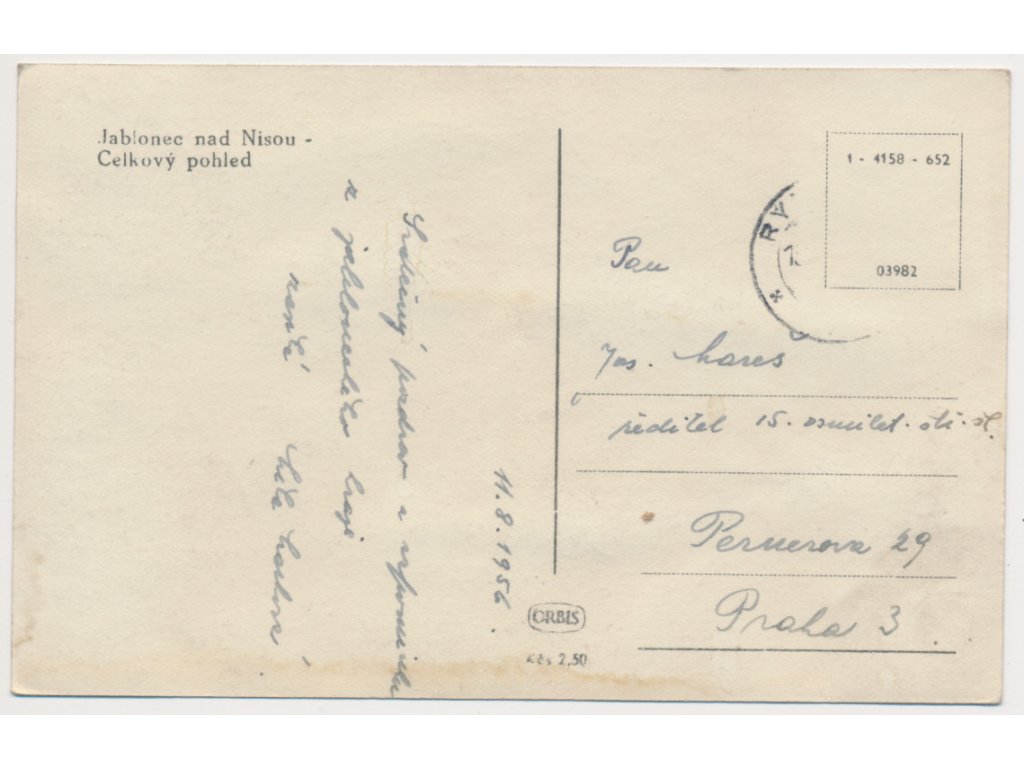 Jablonec nad Nisou -
Celkový pohled
Srdečný pozdrav a vzpomínku
z jabloneckého kraje
11.8.1956.
1 - 4158 - 652
03982
RY
Pan
Jos. Mareš
ředitel 15. osmilet. stř. šk.
Pernerova 29
Praha 3.
ORBIS
Kčs 2,50